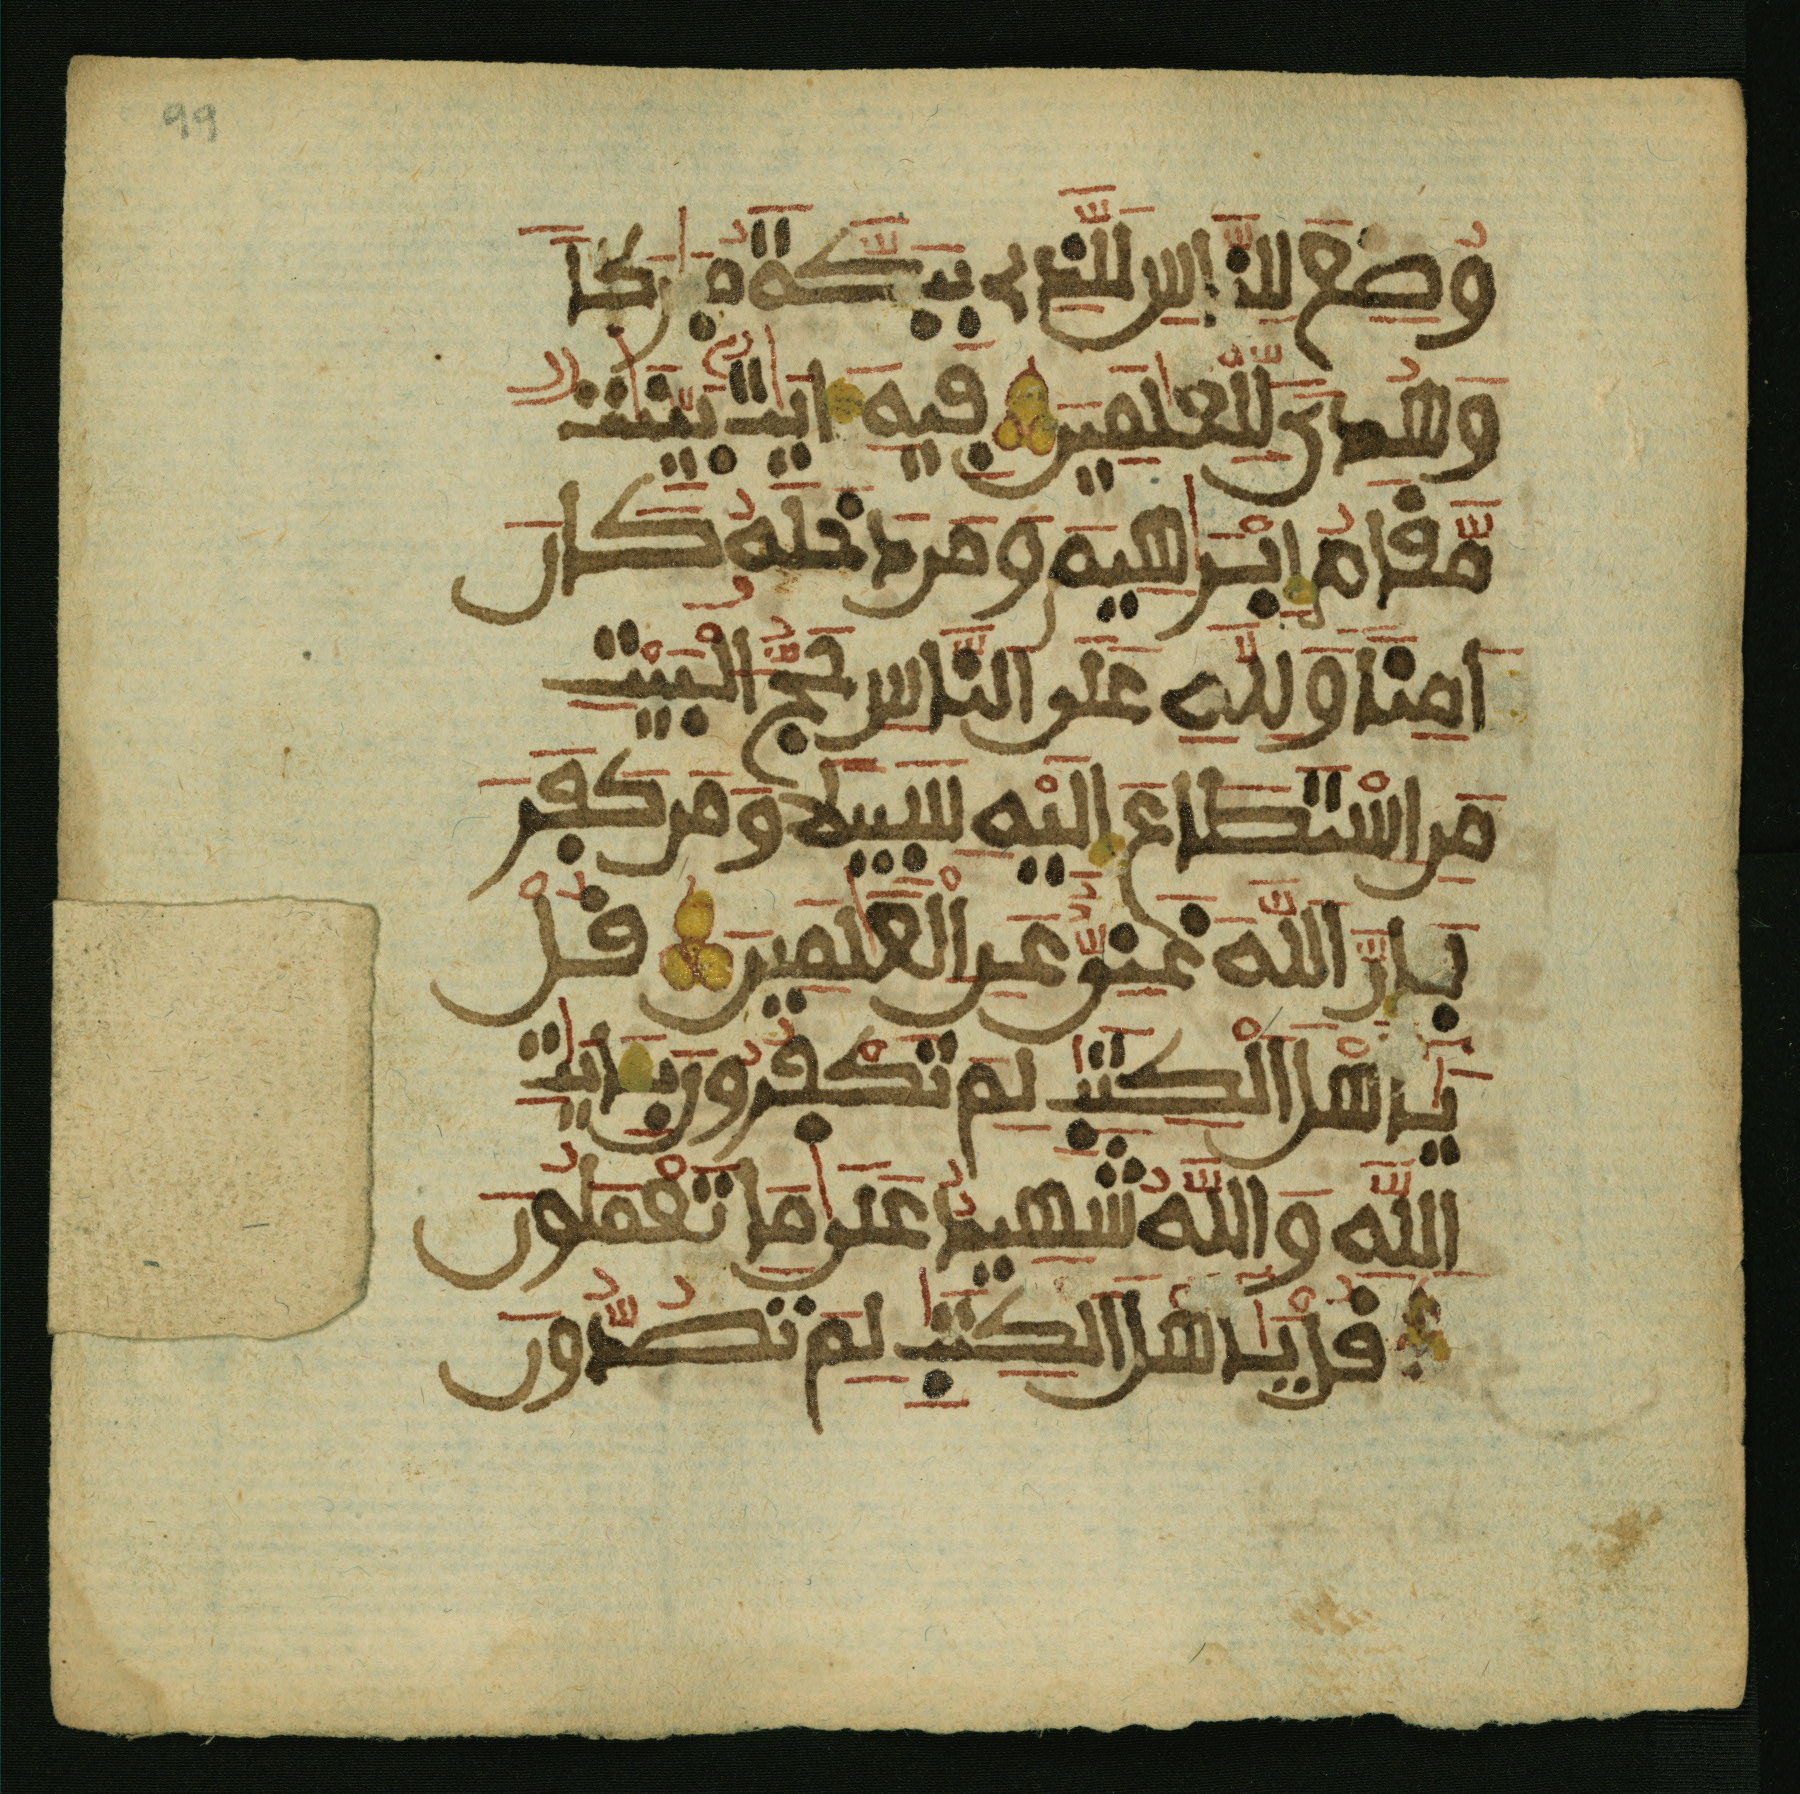 99
وُضِعَ لِلنَّاسِ لَلَّذِي بِبَكَّةَ مُبَٰرَكاً
وَهُدىً لِّلْعَٰلَمِينَ فِيهِ ءَايَٰتُۢ بَيِّنَٰتٌ
مَّقَامُ إِبْرَٰهِيمَ وَمَن دَخَلَهُۥ كَانَ
ءَامِناً وَلِلهِ عَلَى النَّاسِ حَجُّ الْبَيْتِ
مَنِ اسْتَطَاعَ إِلَيْهِ سَبِيلاً وَمَن كَفَرَ
فَإِنَّ اللَّهَ غَنِيٌّ عَنِ الْعَٰلَمِينَ قُلْ
يَٰأَهْلَ الْكِتَٰبِ لِمَ تَكْفُرُونَ بِـَٔايَٰتِ
اللَّهِ وَاللَّهُ شَهِيدٌ عَلَىٰ مَا تَعْمَلُونَ
قُلْ يَٰأَهْلَ الْكِتَٰبِ لِمَ تَصُدُّونَ